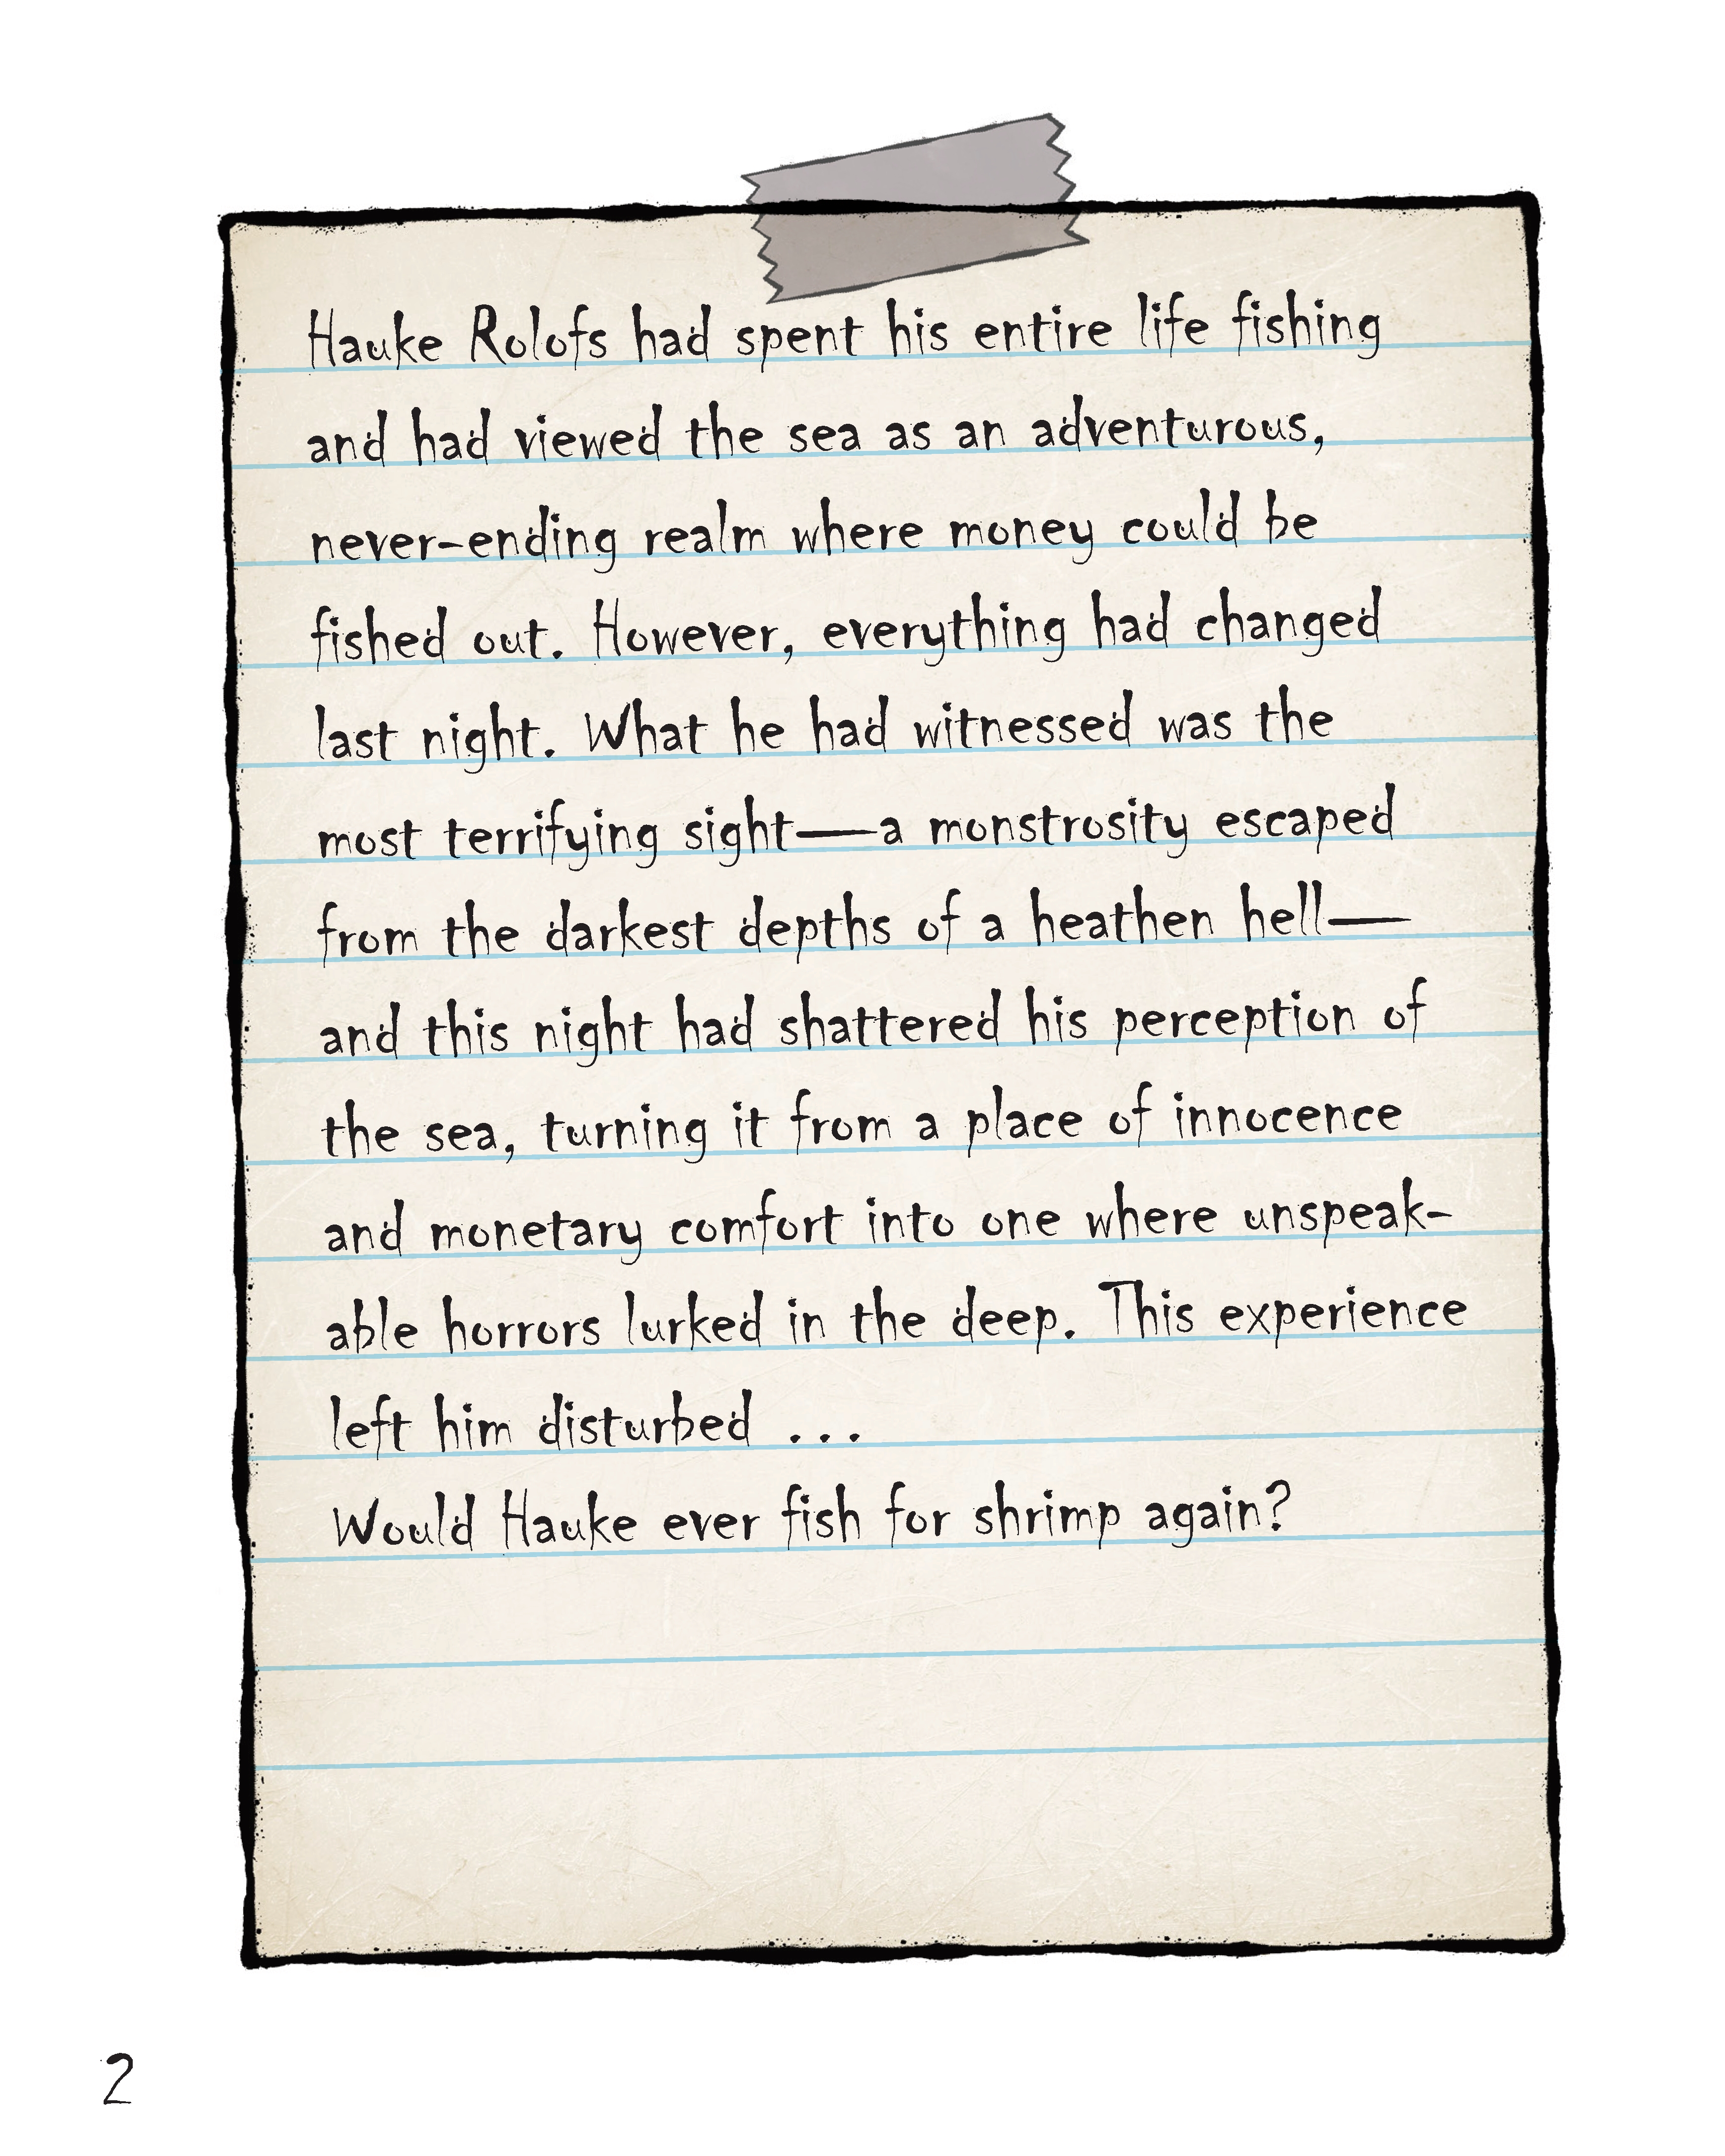 Hauke Rolofs had spent his entire life fishing
and had viewed the sea as an adventurous,
never-ending realm where money could be
fished out. However, everything had changed
last night. What he had witnessed was the
most terrifying sight—a monstrosity escaped
from the darkest depths of a heathen hell—
and this night had shattered his perception of
the sea, turning it from a place of innocence
and monetary comfort into one where unspeak-
able horrors lurked in the deep. This experience
left him disturbed ...
Would Hauke ever fish for shrimp again?
2